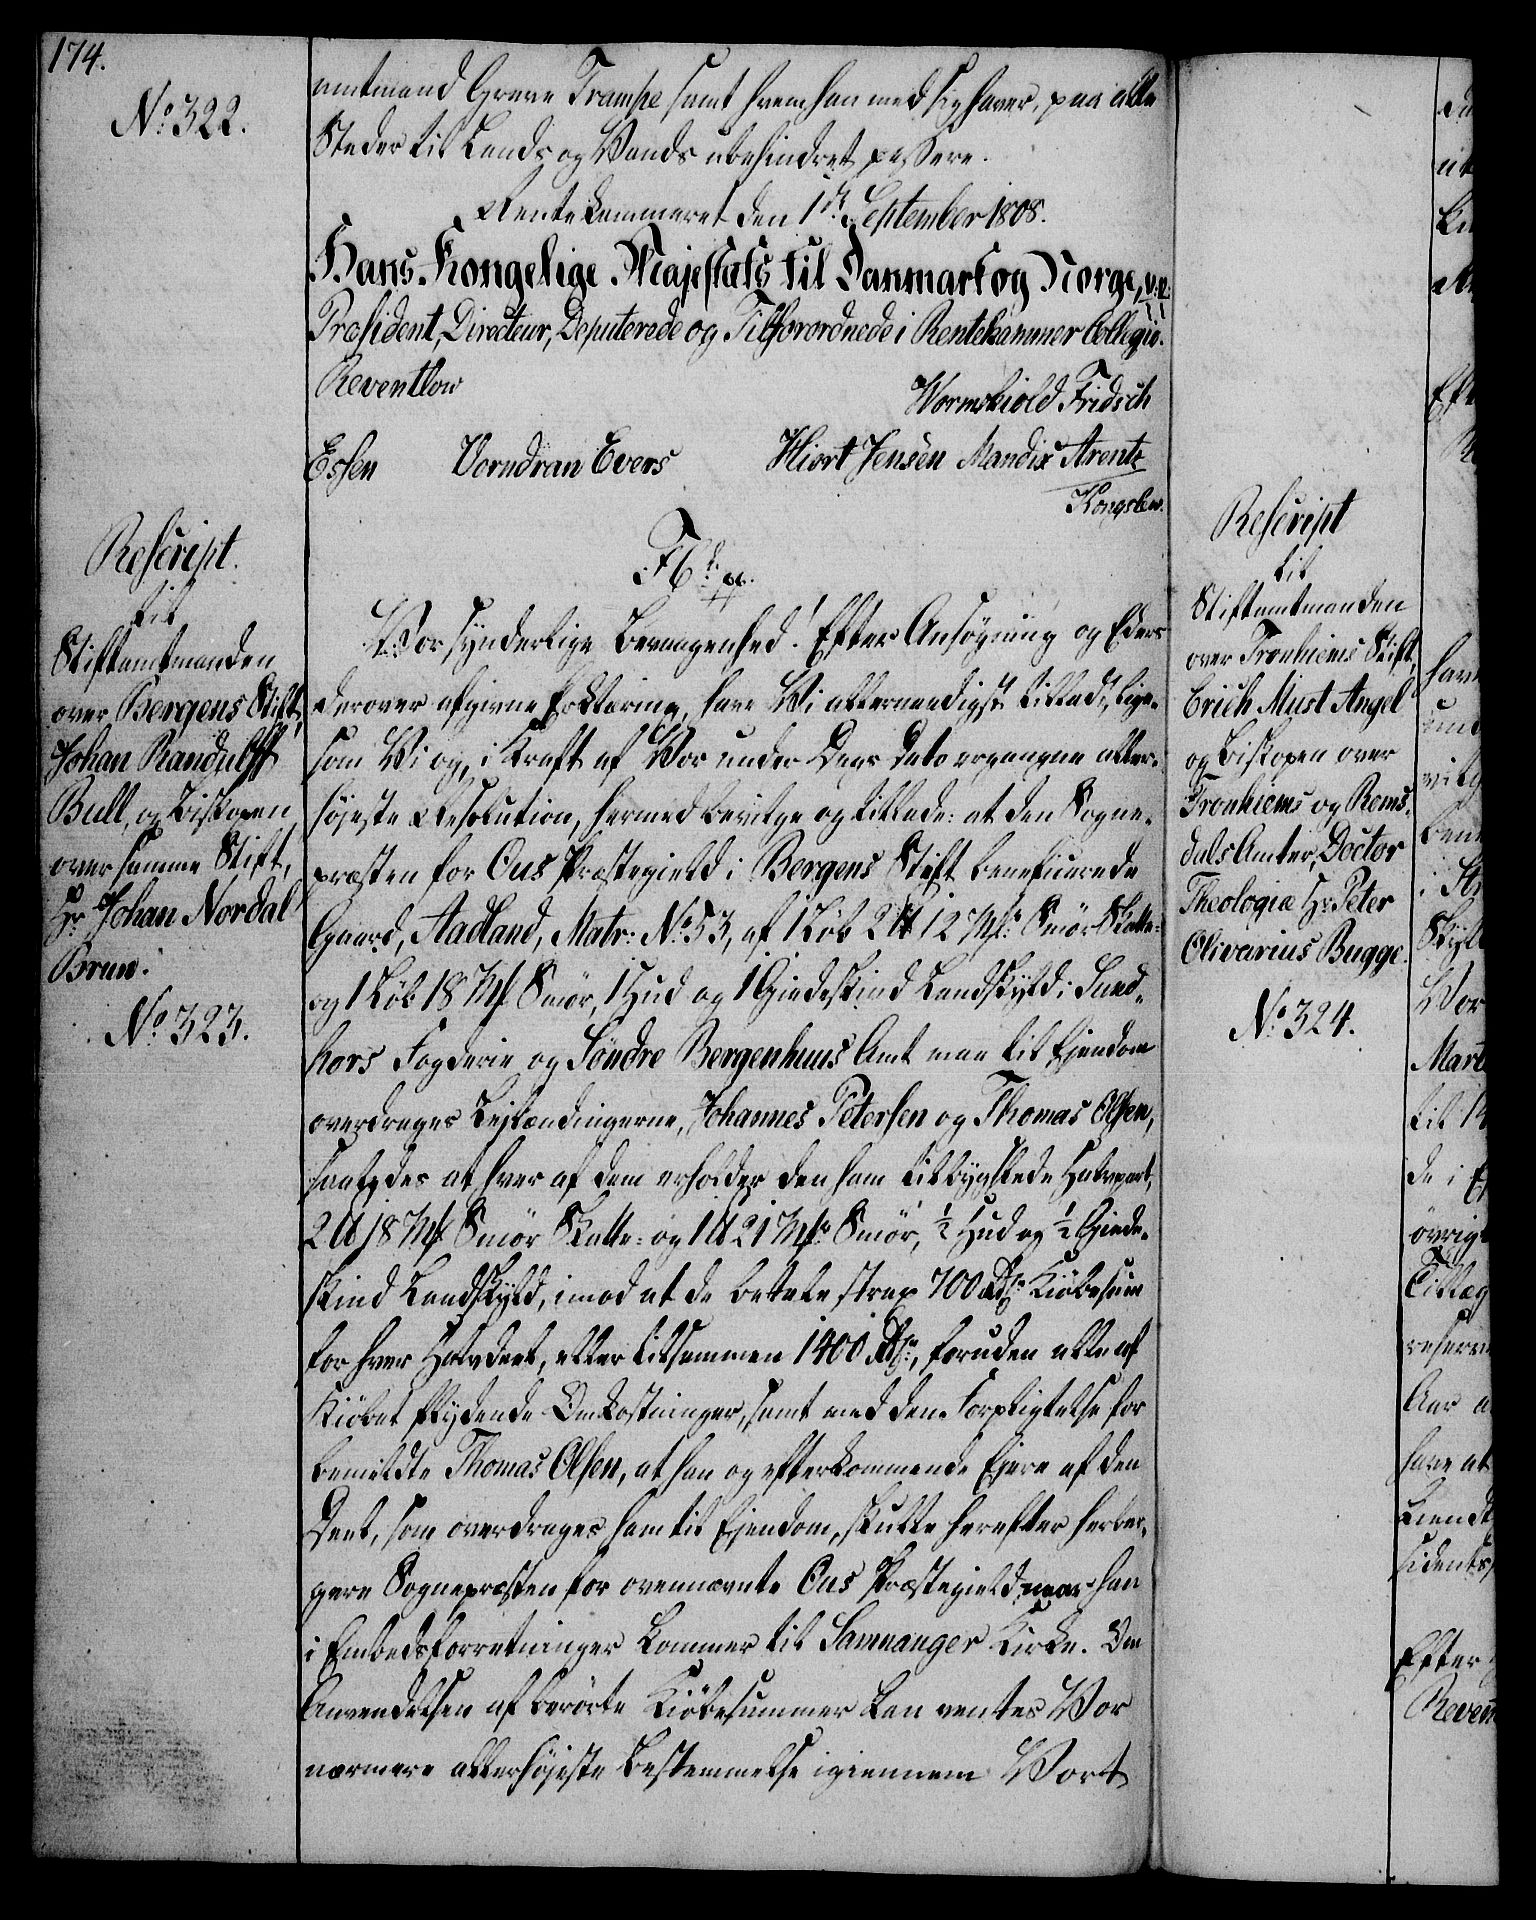 174.
No 322.
amtmand Greve Trampe samt hvem han med sig haver, paa alle
Steder til Lands og Vands ubehindret passere.
Rentekammeret den 1ste September 1808.
Hans Kongelige Majestæts til Danmark og Norge, p.p.
Præsident, Directeur, Deputerede og Tilforordnede i Rentekammer Collegio.
Reventlow
Wormskiold Fridsch
Essen Vorndran Evers Hiort Jensen Mandix Arentz
Kongslew.
Rescript.
til
Stiftamtmanden
over Bergens Stift,
Johan Randulff
Bull, og Biskopen
over samme Stift,
Hr. Johan Nordal
Brun.
No 323.
F 6te
Vor synderlige Bevaagenhed! Efter Ansøgning og Eders
derover afgivne Erklæring, have Vi allernaadigst tilladt, lige-
som Vi og, i Kraft af Vor under Dags Dato ergangne aller-
højeste Resolution, hermed bevilge og tillade: at den Sogne-
præsten for Ous Præstegield i Bergens Stift beneficerede
Gaard, Aadland, Matr: No 53, af 1 Løb 2 ℔ 12 Mk: Smör Skatte-
og 1 Löb 18 Mk Smör, 1 Hud og 1 Giedeskind Landskyld i Sund-
hors Fogderie og Söndre Bergenhuus Amt maa til Ejendom
overdrages Lejlændingerne, Johannes Petersen og Thomas Olsen,
saaledes at hver af dem erholder den ham tilbygslede Halvpart,
2 ℔ 18 Mk Smör Skatte- og 1 ℔ 21 Mk: Smör, ½ Hud og ½ Giede-
skind Landskyld, imod at de betale strax 700 Rdr: Kiöbesum
for hver Halvdeel, eller tilsammen 1400 Rdr:, foruden alle af
Kiöbet flydende Omkostninger, samt med den Forpligtelse for
bemeldte Thomas Olsen, at han og efterkommende Ejere af den
Deel, som overdrages ham til Ejendom, skulle herefter herber-
gere Sognepræsten for ovennævnte Ous Præstegield naar han
i Embedsforretninger kommer til Samnanger Kirke. Om
Anvendelsen af berörte Kiöbesummer kan ventes Vor
nærmere allerhöjeste Bestemmelse igiennem Vort
Rescript
til
Stiftamtmanden
over Tronhiems Stift,
Erich Must Angel
og Biskopen over
Tronhiems og Roms-
dals Amter, Doctor
Theologiæ Hr. Peter
Olivarius Bugge.
No 324.